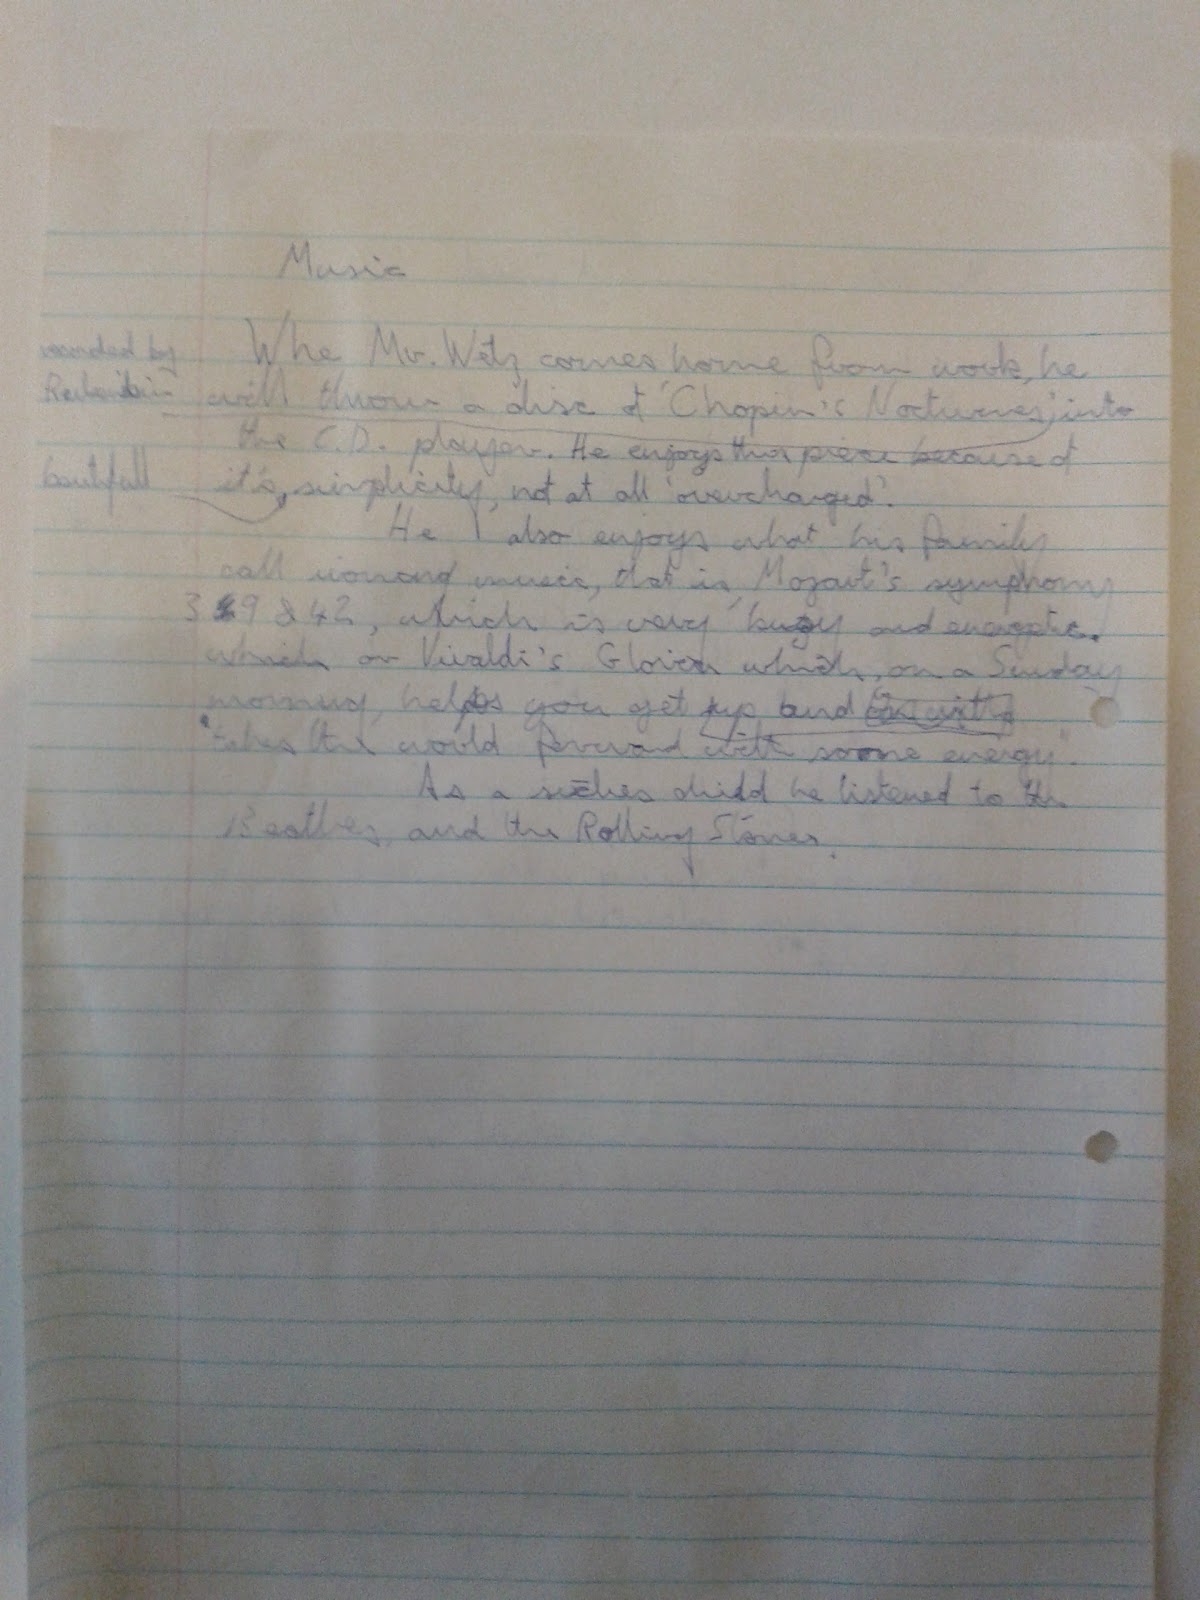 Music
Whe Mr. Wetz comes home from work, he
rounded by
will throw a disc of 'Chopin's Nocturnes' into
the C.D. player. He enjoys this piece because of
beutifull
it's, simplicity, not at all 'overcharged'.
He also enjoys what his family
call music, that is, Mozart's symphony
39 & 42, which is very busy and energetic.
which or Vivaldi's Gloria which, on a Sunday
morning, helps you get up and
"takes the world forward with some energy".
As a child he listened to the
Beatles, and the Rolling Stones.